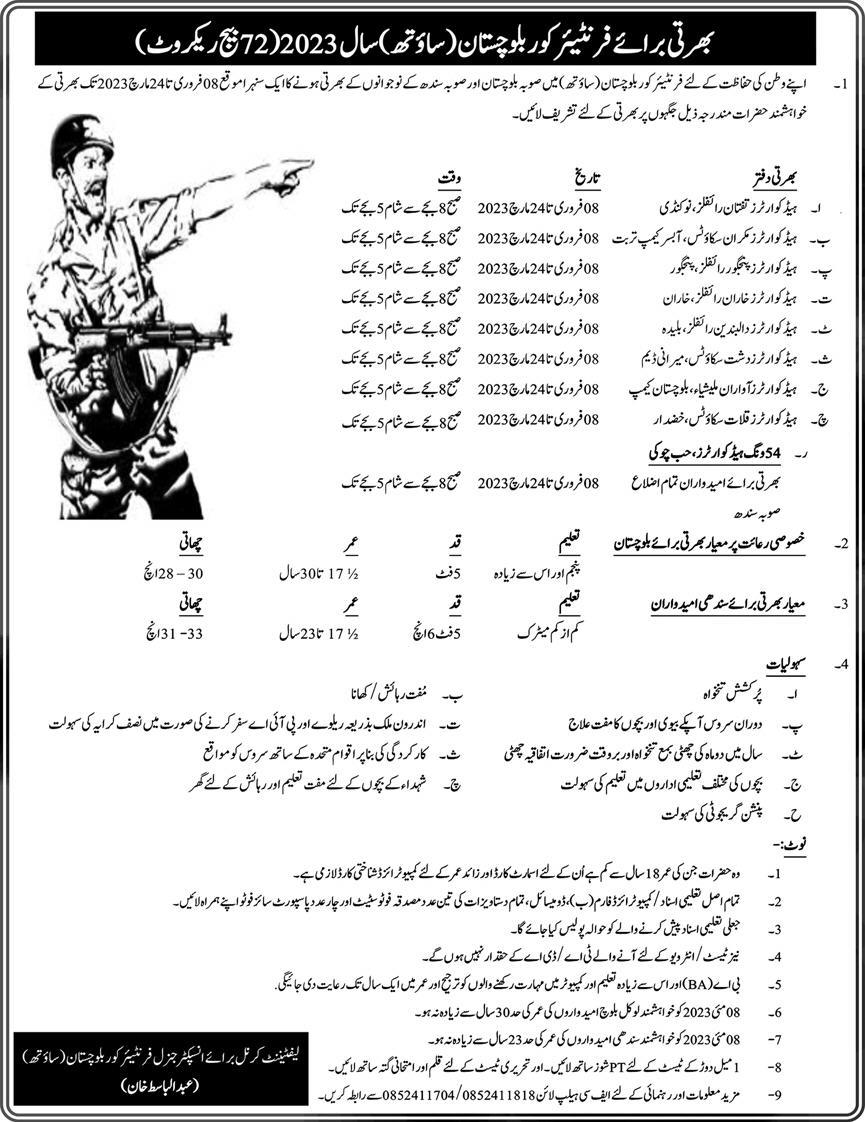 بھرتی برائے فرنٹیئر کور بلوچستان (ساؤتھ) سال 2023 (72 بیچ ریکروٹ)
1۔ اپنے وطن کی حفاظت کے لئے فرنٹیئر کور بلوچستان (ساؤتھ) میں صوبہ بلوچستان اور صوبہ سندھ کے نوجوانوں کے بھرتی ہونے کا ایک سنہرا موقع 08 فروری تا 24 مارچ 2023 تک بھرتی کے
خواہشمند حضرات مندرجہ ذیل جگہوں پر بھرتی کے لئے تشریف لائیں۔
بھرتی دفتر تاریخ وقت
ا۔ ہیڈ کوارٹرز تفتان رائفلز، نوکنڈی 08 فروری تا 24 مارچ 2023 صبح 8 بجے سے شام 5 بجے تک
ب۔ ہیڈ کوارٹرز مکران سکاؤٹس، آبسر کیمپ تربت 08 فروری تا 24 مارچ 2023 صبح 8 بجے سے شام 5 بجے تک
پ۔ ہیڈ کوارٹرز پنجگور رائفلز، پنجگور 08 فروری تا 24 مارچ 2023 صبح 8 بجے سے شام 5 بجے تک
ت۔ ہیڈ کوارٹرز خاران رائفلز، خاران 08 فروری تا 24 مارچ 2023 صبح 8 بجے سے شام 5 بجے تک
ٹ۔ ہیڈ کوارٹرز دالبندین رائفلز، بلیدہ 08 فروری تا 24 مارچ 2023 صبح 8 بجے سے شام 5 بجے تک
ث۔ ہیڈ کوارٹرز دشت سکاؤٹس، میرانی ڈیم 08 فروری تا 24 مارچ 2023 صبح 8 بجے سے شام 5 بجے تک
ج۔ ہیڈ کوارٹرز آواران ملیشیاء، بلوچستان کیمپ 08 فروری تا 24 مارچ 2023 صبح 8 بجے سے شام 5 بجے تک
چ۔ ہیڈ کوارٹرز قلات سکاؤٹس، خضدار 08 فروری تا 24 مارچ 2023 صبح 8 بجے سے شام 5 بجے تک
ر۔ 54 ونگ ہیڈ کوارٹرز، حب چوکی
بھرتی برائے امیدواران تمام اضلاع 08 فروری تا 24 مارچ 2023 صبح 8 بجے سے شام 5 بجے تک
صوبہ سندھ
2۔ خصوصی رعائت پر معیار بھرتی برائے بلوچستان تعلیم قد عمر چھاتی
پنجم اور اس سے زیادہ 5 فٹ 17 ½ تا 30 سال 28 – 30 انچ
3۔ معیار بھرتی برائے سندھی امیدواران تعلیم قد عمر چھاتی
کم از کم میٹرک 5 فٹ 6 انچ 17 ½ تا 23 سال 31 – 33 انچ
4۔ سہولیات
ا۔ پُرکشش تنخواہ ب۔ مُفت رہائش / کھانا
پ۔ دوران سروس آپکے بیوی اور بچوں کا مفت علاج ت۔ اندرون ملک بذریعہ ریلوے اور پی آئی اے سفر کرنے کی صورت میں نصف کرایہ کی سہولت
ٹ۔ سال میں دو ماہ کی چھٹی بمع تنخواہ اور بروقت ضرورت اتفاقیہ چھٹی ث۔ کارکردگی کی بنا پر اقوام متحدہ کے ساتھ سروس کو مواقع
ج۔ بچوں کی مختلف تعلیمی اداروں میں تعلیم کی سہولت چ۔ شہداء کے بچوں کے لئے مفت تعلیم اور رہائش کے لئے گھر
ح۔ پنشن گریجوٹی کی سہولت
نوٹ:-
1۔ وہ حضرات جن کی عمر 18 سال سے کم ہے اُن کے لئے اسمارٹ کارڈ اور زائد عمر کے لئے کمپیوٹرائزڈ شناختی کارڈ لازمی ہے۔
2۔ تمام اصل تعلیمی اسناد / کمپیوٹرائزڈ فارم (ب)، ڈومیسائل، تمام دستاویزات کی تین عدد مصدقہ فوٹوسٹیٹ اور چار عدد پاسپورٹ سائز فوٹو اپنے ہمراہ لائیں۔
3۔ جعلی تعلیمی اسناد پیش کرنے والے کو حوالہ پولیس کیا جائے گا۔
4۔ نیز ٹیسٹ / انٹرویو کے لئے آنے والے ٹی اے / ڈی اے کے حقدار نہیں ہوں گے۔
5۔ بی اے (BA) اور اس سے زیادہ تعلیم اور کمپیوٹر میں مہارت رکھنے والوں کو ترجیح اور عمر میں ایک سال تک رعایت دی جائیگی۔
6۔ 08 مئی 2023 کو خواہشمند لوکل بلوچ امیدواروں کی عمر کی حد 30 سال سے زیادہ نہ ہو۔
7۔ 08 مئی 2023 کو خواہشمند سندھی امیدواروں کی عمر کی حد 23 سال سے زیادہ نہ ہو۔
8۔ 1 میل دوڑ کے ٹیسٹ کے لئے PT شوز ساتھ لائیں۔ اور تحریری ٹیسٹ کے لئے قلم اور امتحانی گتہ ساتھ لائیں۔
9۔ مزید معلومات اور رہنمائی کے لئے ایف سی ہیلپ لائن 0852411818/0852411704 سے رابطہ کریں۔
لیفٹیننٹ کرنل برائے انسپکٹر جنرل فرنٹیئر کور بلوچستان (ساؤتھ)
(عبدالباسط خان)